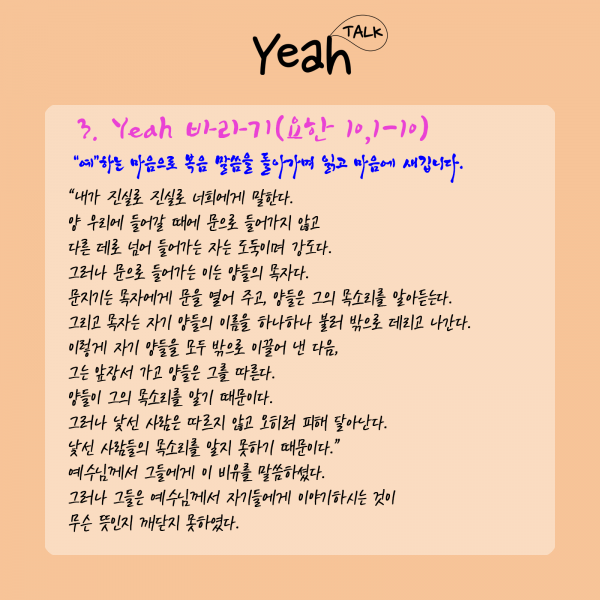 Yeah TALK
3. Yeah 바라기(요한 10,1-10)
"예"하는 마음으로 복음 말씀을 돌아가며 읽고 마음에 새깁니다.
“내가 진실로 진실로 너희에게 말한다.
양 우리에 들어갈 때에 문으로 들어가지 않고
다른 데로 넘어 들어가는 자는 도둑이며 강도다.
그러나 문으로 들어가는 이는 양들의 목자다.
문지기는 목자에게 문을 열어 주고, 양들은 그의 목소리를 알아듣는다.
그리고 목자는 자기 양들의 이름을 하나하나 불러 밖으로 데리고 나간다.
이렇게 자기 양들을 모두 밖으로 이끌어 낸 다음,
그는 앞장서 가고 양들은 그를 따른다.
양들이 그의 목소리를 알기 때문이다.
그러나 낯선 사람은 따르지 않고 오히려 피해 달아난다.
낯선 사람들의 목소리를 알지 못하기 때문이다.”
예수님께서 그들에게 이 비유를 말씀하셨다.
그러나 그들은 예수님께서 자기들에게 이야기하시는 것이
무슨 뜻인지 깨닫지 못하였다.